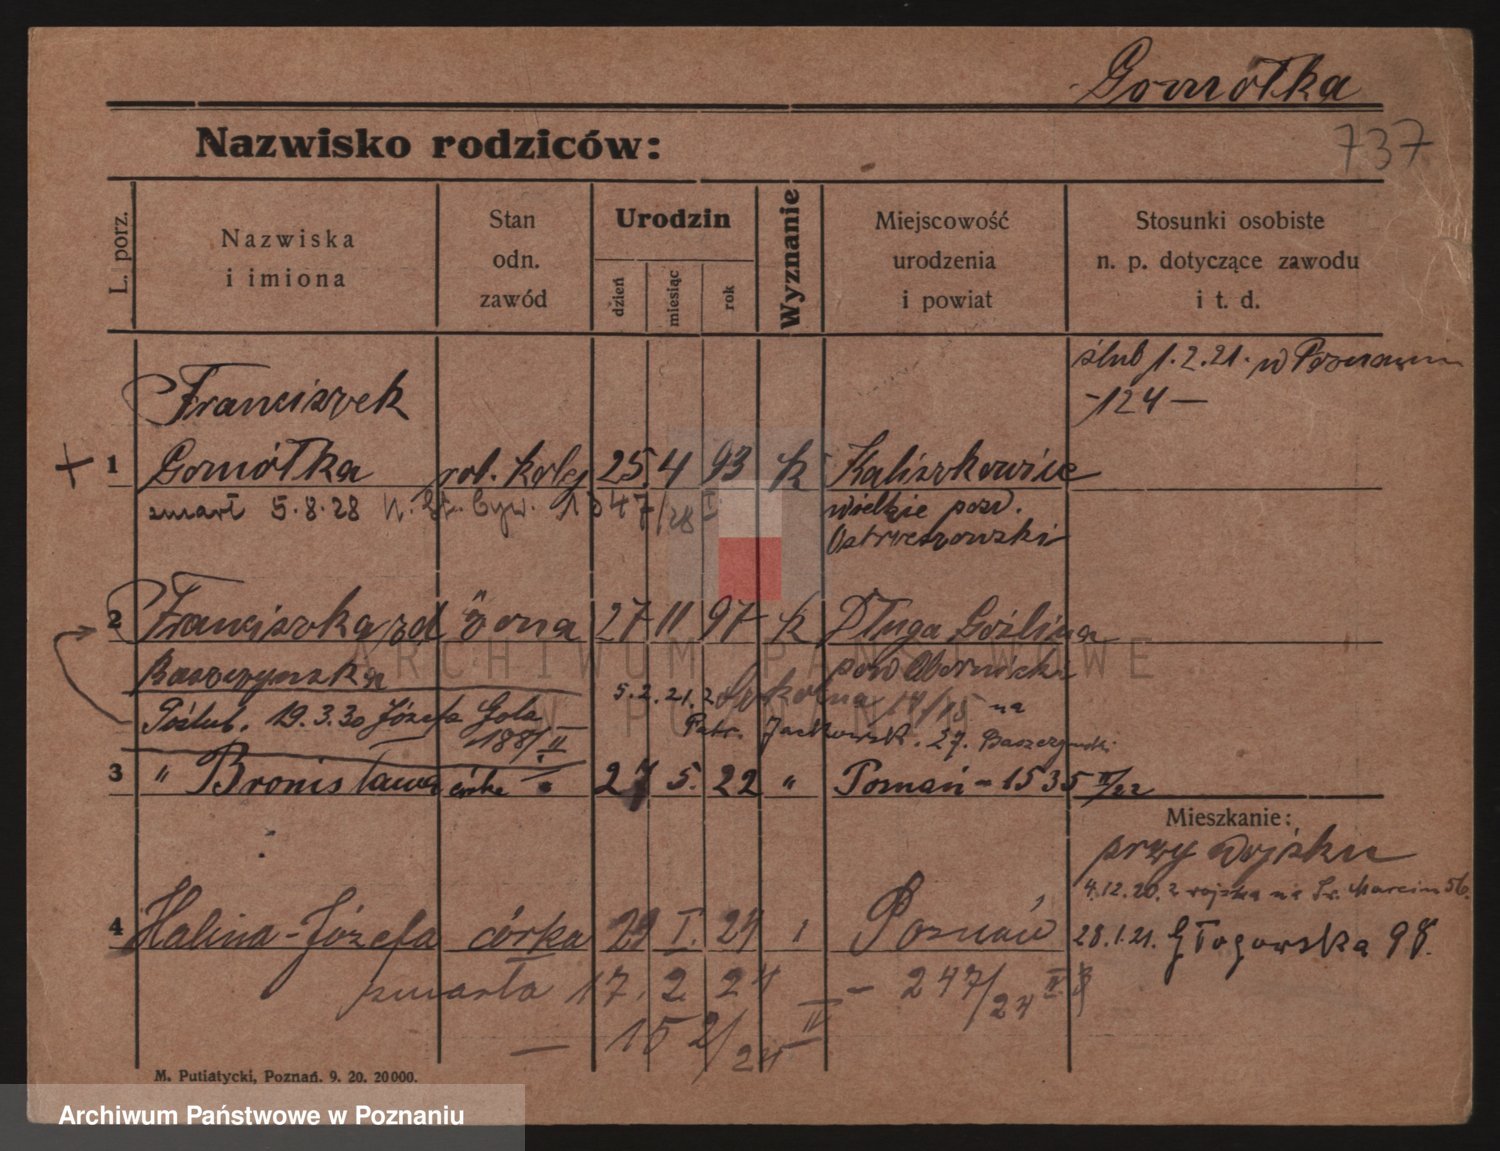 Gomółka
737
Nazwisko rodziców:
L. porz.
Nazwiska
i imiona
Stan
odn.
zawód
Urodzin
dzień
miesiąc
rok
Wyznanie
Miejscowość
urodzenia
i powiat
Stosunki osobiste
n. p. dotyczące zawodu
i t. d.
ślub 1.2.21. w Poznaniu
-124-
Franciszek
+ 1 Gomółka rob. kolej 25. 4 93 k Kaliszkowice
zmarł 5.8.28 1347/28 I
wielkie pow.
Ostrzeszowski
2 Franciszka zd żona 27 11 97 k Długa Goślina
Baszczyńska pow Obornicki
5.2.21. z 14/15 na
Poślub. 19.3.30 Józefa Gola
188/II
Patr. Jackowsk. 27. Baszczyński
3 " Bronisława córka 27 5. 22 " Poznań - 1535 II/22
Mieszkanie:
przy wojsku
4.12.20. z wojska na Św. Marcin 56.
4 Halina-Józefa córka 29 I. 24 Poznań
28.1.21. Głogowska 98.
zmarła 17. 2. 24 - 247/24 II
- 152/24 IV
M. Putiatycki, Poznań. 9. 20. 20000.
ARCHIWUM PAŃSTWOWE
W POZNANIU
Archiwum Państwowe w Poznaniu